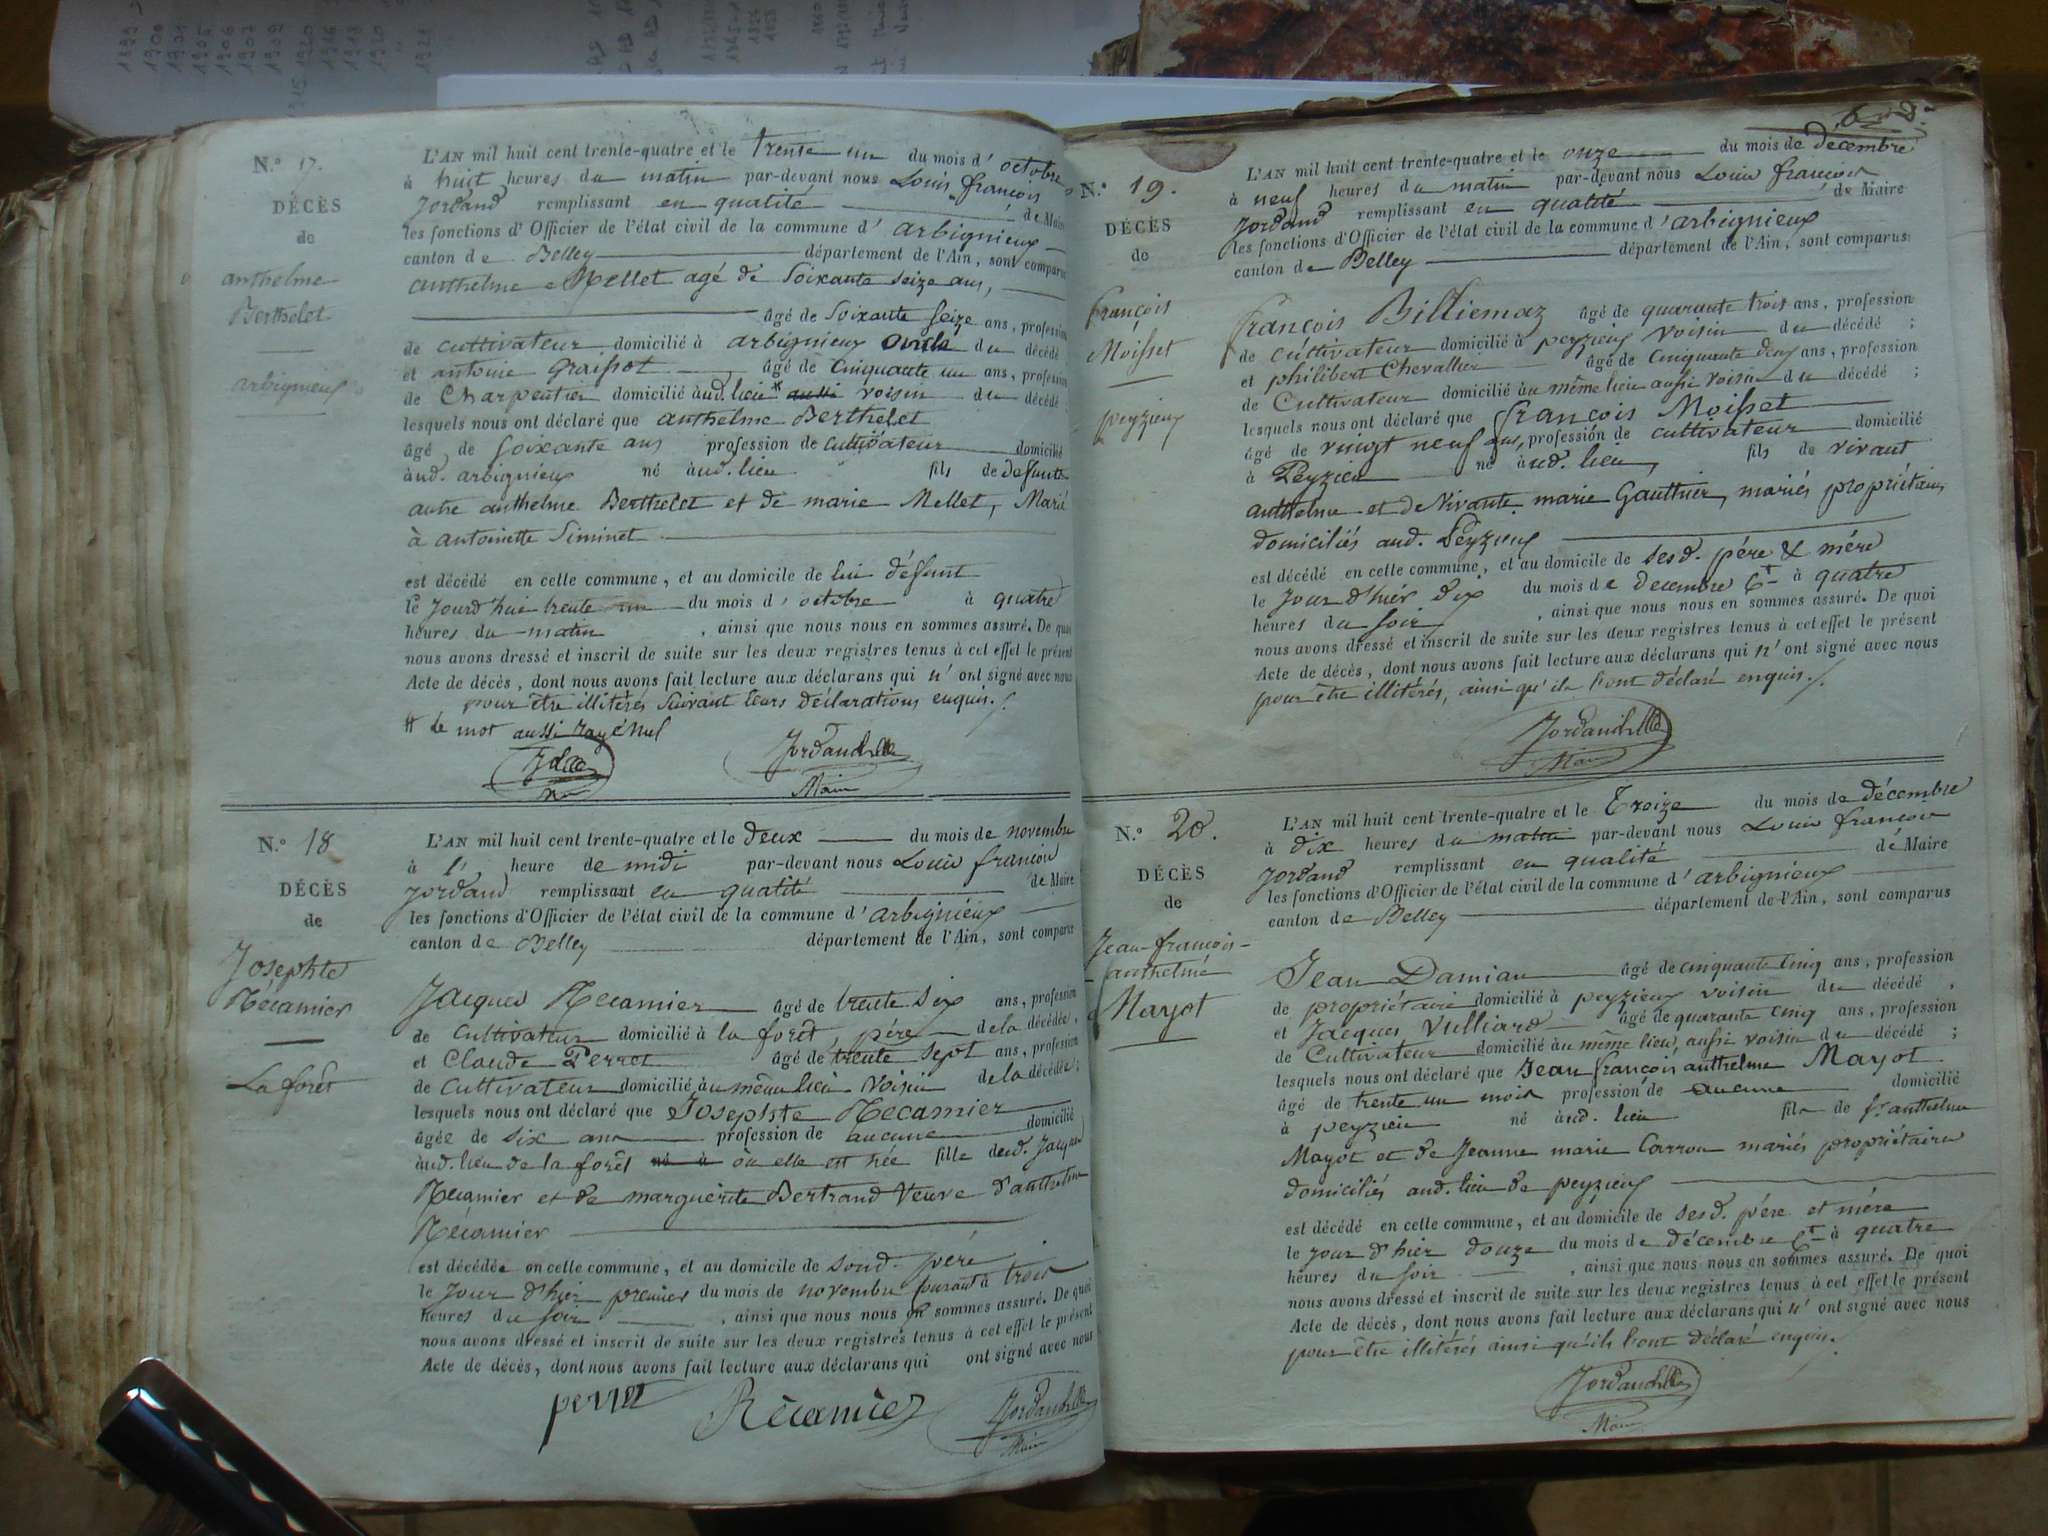 N.º 17.
DÉCÈS
de
anthelme
Berthelet
arbignieux
L'AN mil huit cent trente-quatre et le trente un du mois d'octobre
à huit heures du matin par-devant nous Louis françois
Jordand remplissant en qualité de Maire
les fonctions d'Officier de l'état civil de la commune d'arbignieux
canton de Belley département de l'Ain, sont comparus
anthelme Mellet agé de Soixante seize ans,
âgé de Soixante seize ans, profession
de cultivateur domicilié à arbignieux oncle du décédé
et antoine Graissot âgé de Cinquante un ans, profession
de Charpentier domicilié àud. lieu * aussi voisin du décédé;
lesquels nous ont déclaré que anthelme Berthelet
âgé de Soixante ans profession de cultivateur domicilié
àud. arbignieux né àud. lieu fils de defunts
autre anthelme Berthelet et de marie Mellet, Marié
à antoinette Siminet
est décédé en celle commune, et au domicile de lui défunt
le Jourd'hui trente un du mois d'octobre à quatre
heures du matin, ainsi que nous nous en sommes assuré. De quoi
nous avons dressé et inscrit de suite sur les deux registres tenus à cet effet le présent
Acte de décès, dont nous avons fait lecture aux déclarans qui n'ont signé avec nous
pour être illitérés suivant leurs déclarations enquis./.
# Le mot aussi rayé nul
Jordand
Maire
N.º 18
DÉCÈS
de
Josephte
Récamier
La forêt
L'AN mil huit cent trente-quatre et le deux du mois de novembre
à l' heure de midi par-devant nous Louis françois
Jordand remplissant en qualité de Maire
les fonctions d'Officier de l'état civil de la commune d'arbignieux
canton de Belley département de l'Ain, sont comparus
Jacques Récamier âgé de trente six ans, profession
de Cultivateur domicilié à la forêt, père de la décédée,
et Claude Perret âgé de trente sept ans, profession
de cultivateur domicilié àu même lieu voisin de la décédée;
lesquels nous ont déclaré que Josephte Récamier
âgée de six ans profession de aucune domicilié
àud. lieu de la forêt né à où elle est née fille dud. Jacques
Récamier et de marguerite Bertrand Veuve d'anthelme
Récamier
est décédée en celle commune, et au domicile de sond. père
le Jour d'hier premier du mois de novembre courant à trois
heures du soir, ainsi que nous nous en sommes assuré. De quoi
nous avons dressé et inscrit de suite sur les deux registres tenus à cet effet le présent
Acte de décès, dont nous avons fait lecture aux déclarans qui ont signé avec nous
perret Récamier Jordand
Maire
N.º 19.
DÉCÈS
de
françois
Moisset
peyzieux
L'AN mil huit cent trente-quatre et le onze du mois de décembre
à neuf heures du matin par-devant nous Louis françois
Jordand remplissant en qualité de Maire
les fonctions d'Officier de l'état civil de la commune d'arbignieux
canton de Belley département de l'Ain, sont comparus
françois Billiemaz âgé de quarante trois ans, profession
de cultivateur domicilié à peyzieux voisin du décédé;
et philibert Chevallier âgé de Cinquante deux ans, profession
de Cultivateur domicilié àu même lieu aussi voisin du décédé;
lesquels nous ont déclaré que françois Moisset
âgé de vingt neuf ans, profession de cultivateur domicilié
à Peyzieu né àud. lieu, fils de vivant
anthelme et de Vivante marie Gauthier, mariés propriétaires
domiciliés aud. Peyzieux
est décédé en celle commune, et au domicile de sesd. père & mère
le Jour d'hier dix du mois de decembre Ct à quatre
heures du soir, ainsi que nous nous en sommes assuré. De quoi
nous avons dressé et inscrit de suite sur les deux registres tenus à cet effet le présent
Acte de décès, dont nous avons fait lecture aux déclarans qui n'ont signé avec nous
pour être illitérés, ainsi qu'ils l'ont déclaré enquis./.
Jordand
Maire
N.º 20.
DÉCÈS
de
Jean-françois-
anthelme
Mayot
L'AN mil huit cent trente-quatre et le Treize du mois de décembre
à dix heures du matin par-devant nous Louis françois
Jordand remplissant en qualité de Maire
les fonctions d'Officier de l'état civil de la commune d'arbignieux
canton de Belley département de l'Ain, sont comparus
Jean Damian âgé de cinquante cinq ans, profession
de propriétaire domicilié à peyzieux voisin du décédé,
et Jacques Vulliard âgé de quarante cinq ans, profession
de Cultivateur domicilié àu même lieu, aussi voisin du décédé;
lesquels nous ont déclaré que Jean françois anthelme Mayot
âgé de trente un mois profession de aucune domicilié
à peyzieu né àud. lieu fils de fs anthelme
Mayot et de Jeanne marie Carron mariés propriétaires
domiciliés aud. lieu de peyzieux
est décédé en celle commune, et au domicile de sesd. père et mère
le jour d'hier douze du mois de décembre Ct à quatre
heures du soir, ainsi que nous nous en sommes assuré. De quoi
nous avons dressé et inscrit de suite sur les deux registres tenus à cet effet le présent
Acte de décès, dont nous avons fait lecture aux déclarans qui n'ont signé avec nous
pour être illitérés ainsi qu'ils l'ont déclaré enquis./.
Jordand
Maire